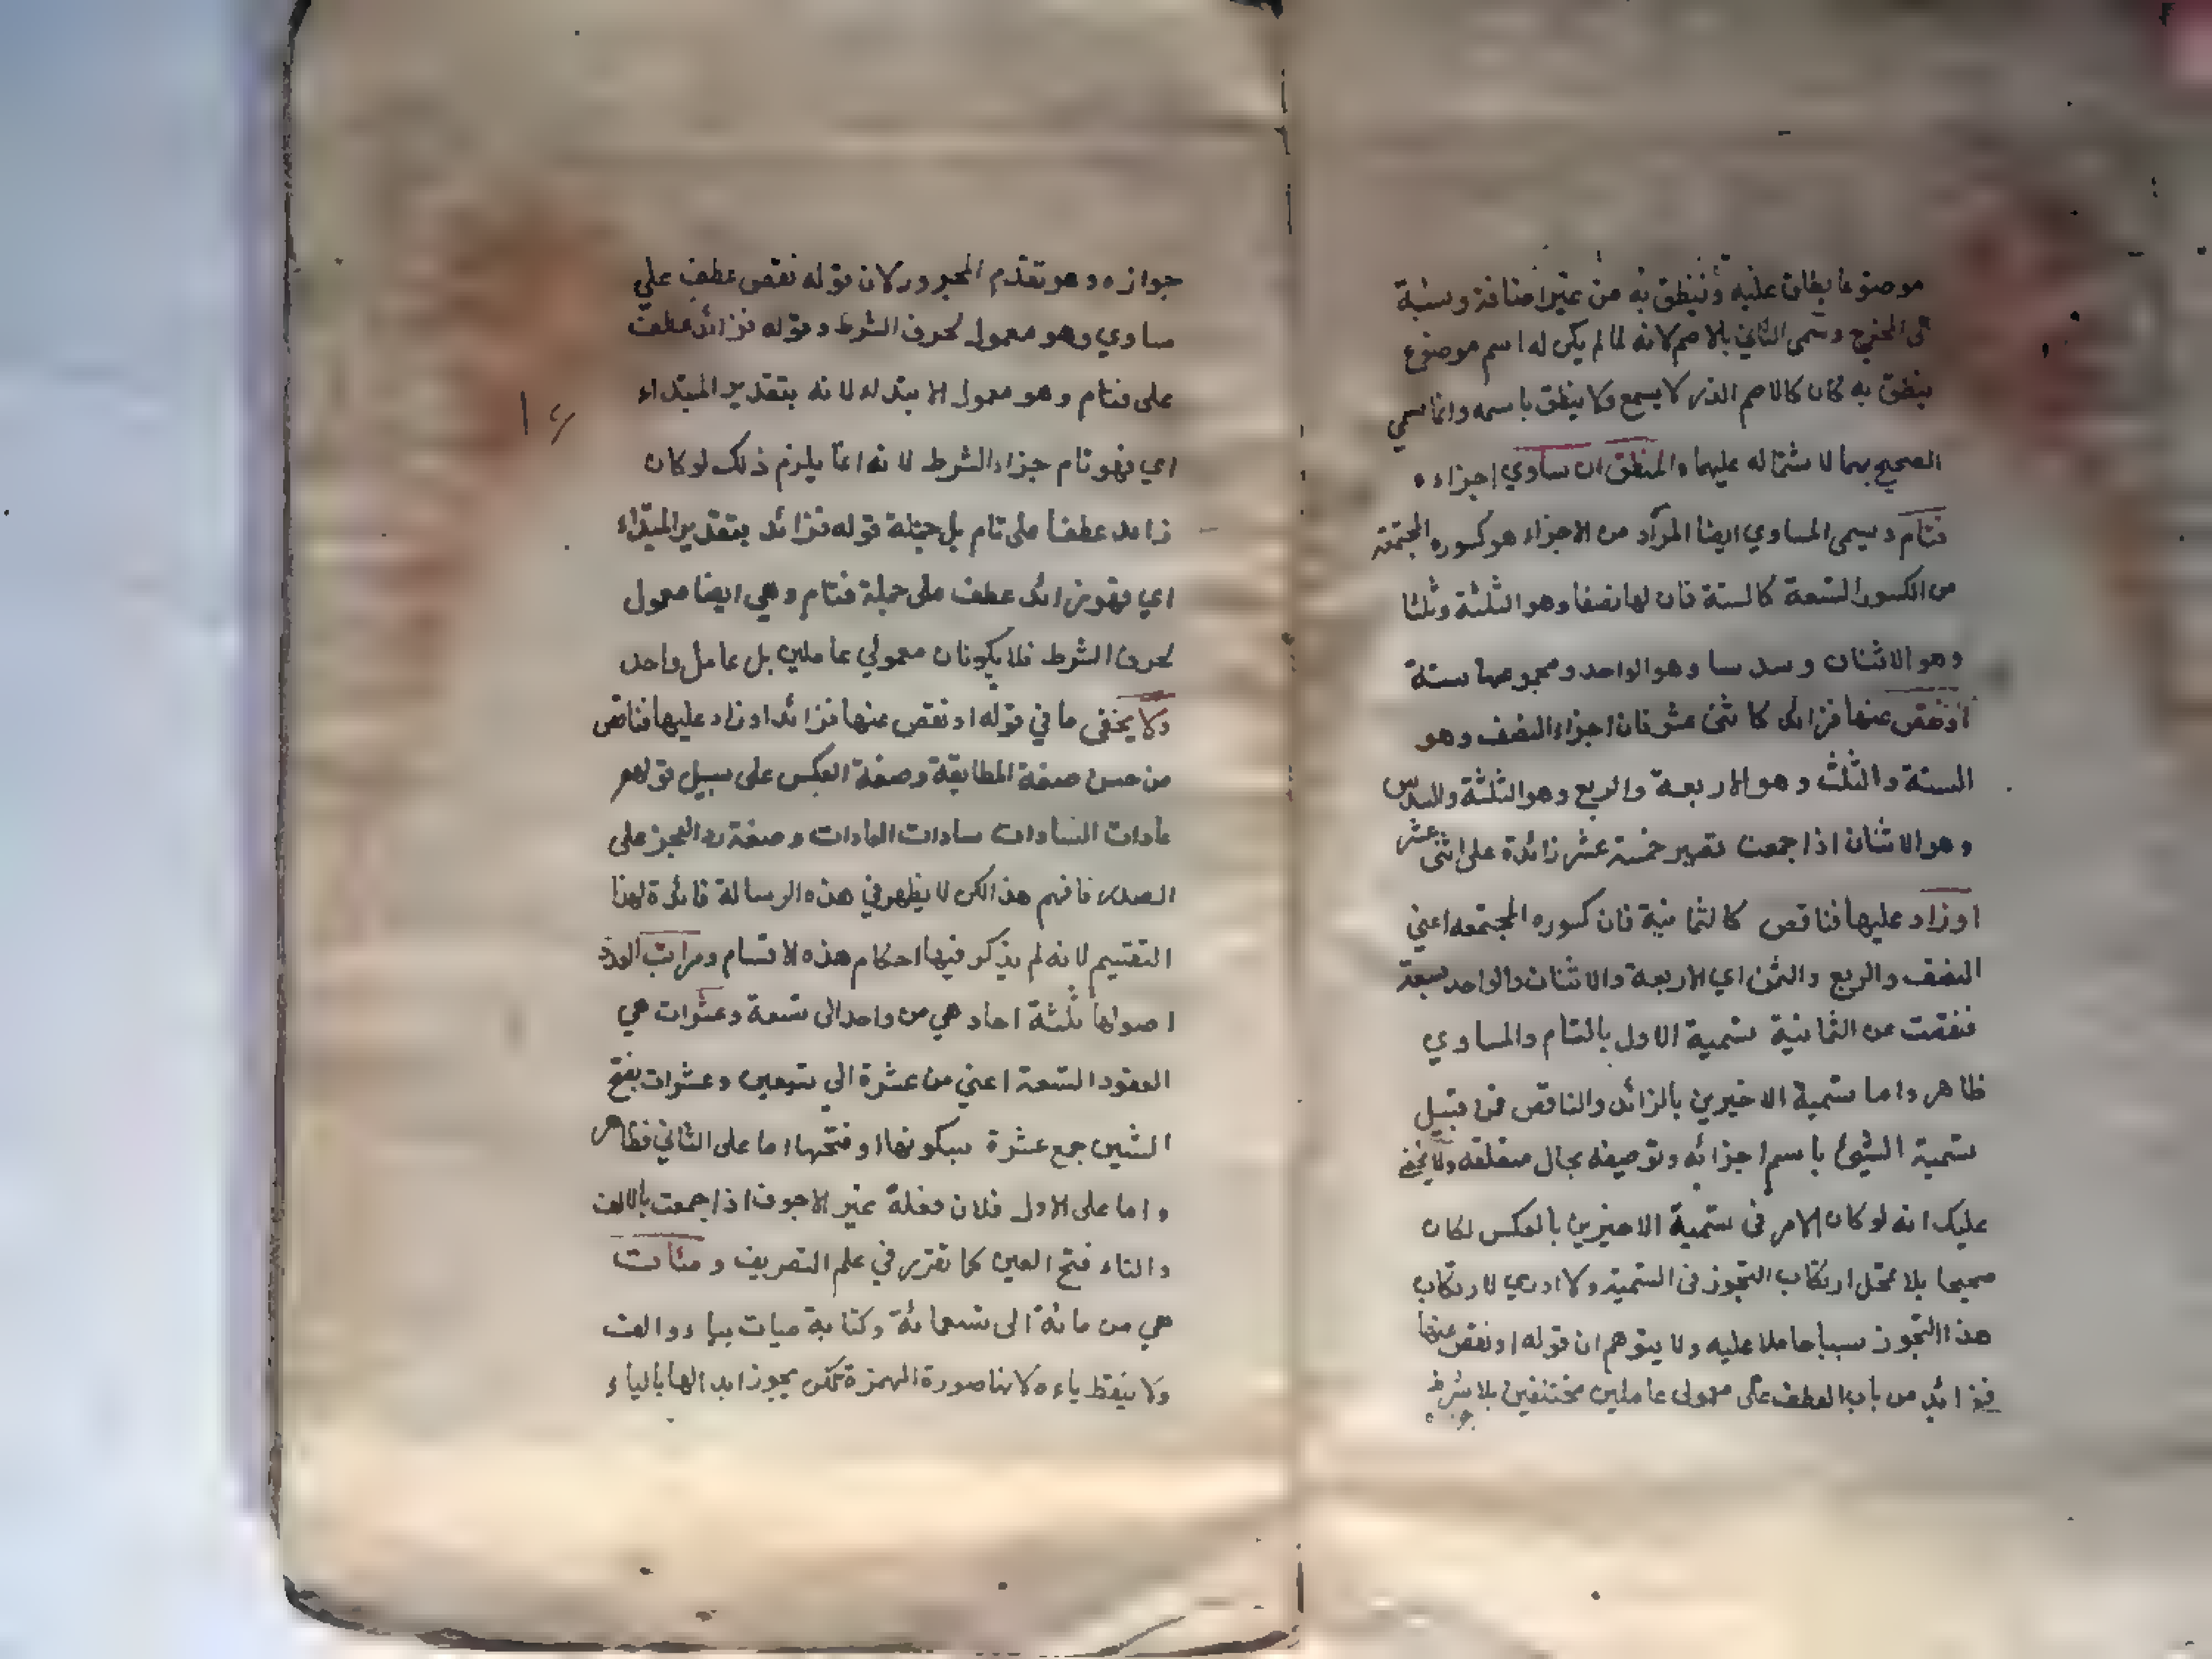 موضوعا يطلق عليه وينطق به من غير اضافة ونسبة
الى المخرج وسمى الثاني بالاصم لانه لما لم يكن له اسم موضوع
ينطق به كان كالاصم الذى لا يسمع ولا ينطق باسمه وانما سمي
الصحيح بهما لاشتماله عليهما والمنطق ان ساوي اجزاءه
فتام ويسمى المساوي ايضا المراد من الاجزاء هو كسوره المجتمعة
من الكسور التسعة كالستة فان لها نصفا وهو الثلثة وثلثا
وهو الاثنان وسدسا وهو الواحد ومجموعها ستة
او نقص عنها فزائد كاثنى عشر فان اجزاء النصف وهو
الستة والثلث وهو الاربعة والربع وهو الثلثة والسدس
وهو الاثنان اذا جمعت تصير خمسة عشر زائدة على اثنى عشر
او زاد عليها فناقص كالثمانية فان كسوره المجتمعه اعني
النصف والربع والثمن اي الاربعة والاثنان والواحد سبعة
فنقصت عن الثمانية تسمية الاول بالتام والمساوي
ظاهر واما تسمية الاخيرين بالزائد والناقص فمن قبيل
تسمية الشيئ باسم اجزائه وتوصيفه بحال متعلقه ولا يخفى
عليك انه لو كان الامر فى تسمية الاخيرين بالعكس لكان
صحيحا بلا تمحل ارتكاب التجوز فى التسمية ولا ادري لارتكاب
هذا التجوز سببا حاملا عليه ولا يتوهم ان قوله او نقص عنها
فزائد من باب العطف على معمولى عاملين مختلفين بلا شرط
جوازه وهو تقدم المجرور لان قوله نقص عطف علي
ساوي وهو معمول لحرف الشرط وقوله فزائد عطف
على فتام وهو معمول الابتداء لانه بتقدير المبتداء
اي فهو تام جزاء الشرط لانه انما يلزم ذلك لو كان
زائد عطفا على تام بل جملة قوله فزائد بتقدير المبتداء
اي فهو زائد عطف على جملة فتام وهي ايضا معمول
لحرف الشرط فلا يكونان معمولي عاملين بل عامل واحد
ولا يخفى ما في قوله او نقص عنها فزائد او زاد عليها فناقص
من حسن صفة المطابقة وصفة العكس على سبيل قولهم
عادات السادات سادات العادات وصفة رد العجز على
الصدر فافهم هذا لكن لا يظهر في هذه الرسالة فائدة لهذا
التقسيم لانه لم يذكر فيها احكام هذه الاقسام ومراتب العدد
اصولها ثلثة احاد هي من واحد الى تسعة وعشرات هي
العقود التسعة اعني من عشرة الي تسعين وعشرات بفتح
الشين جمع عشرة بسكونها او فتحها اما على الثاني فظاهر
واما على الاول فلان فعلة غير الاجوف اذا جمعت بالالف
والتاء فتح العين كما تقرر في علم التصريف ومئات
هي من مائة الى تسعمائة وكتابة ميات بياء والف
ولا ينقط ياءه لانها صورة الهمزة لكن يجوز ابدالها بالياء
١٤